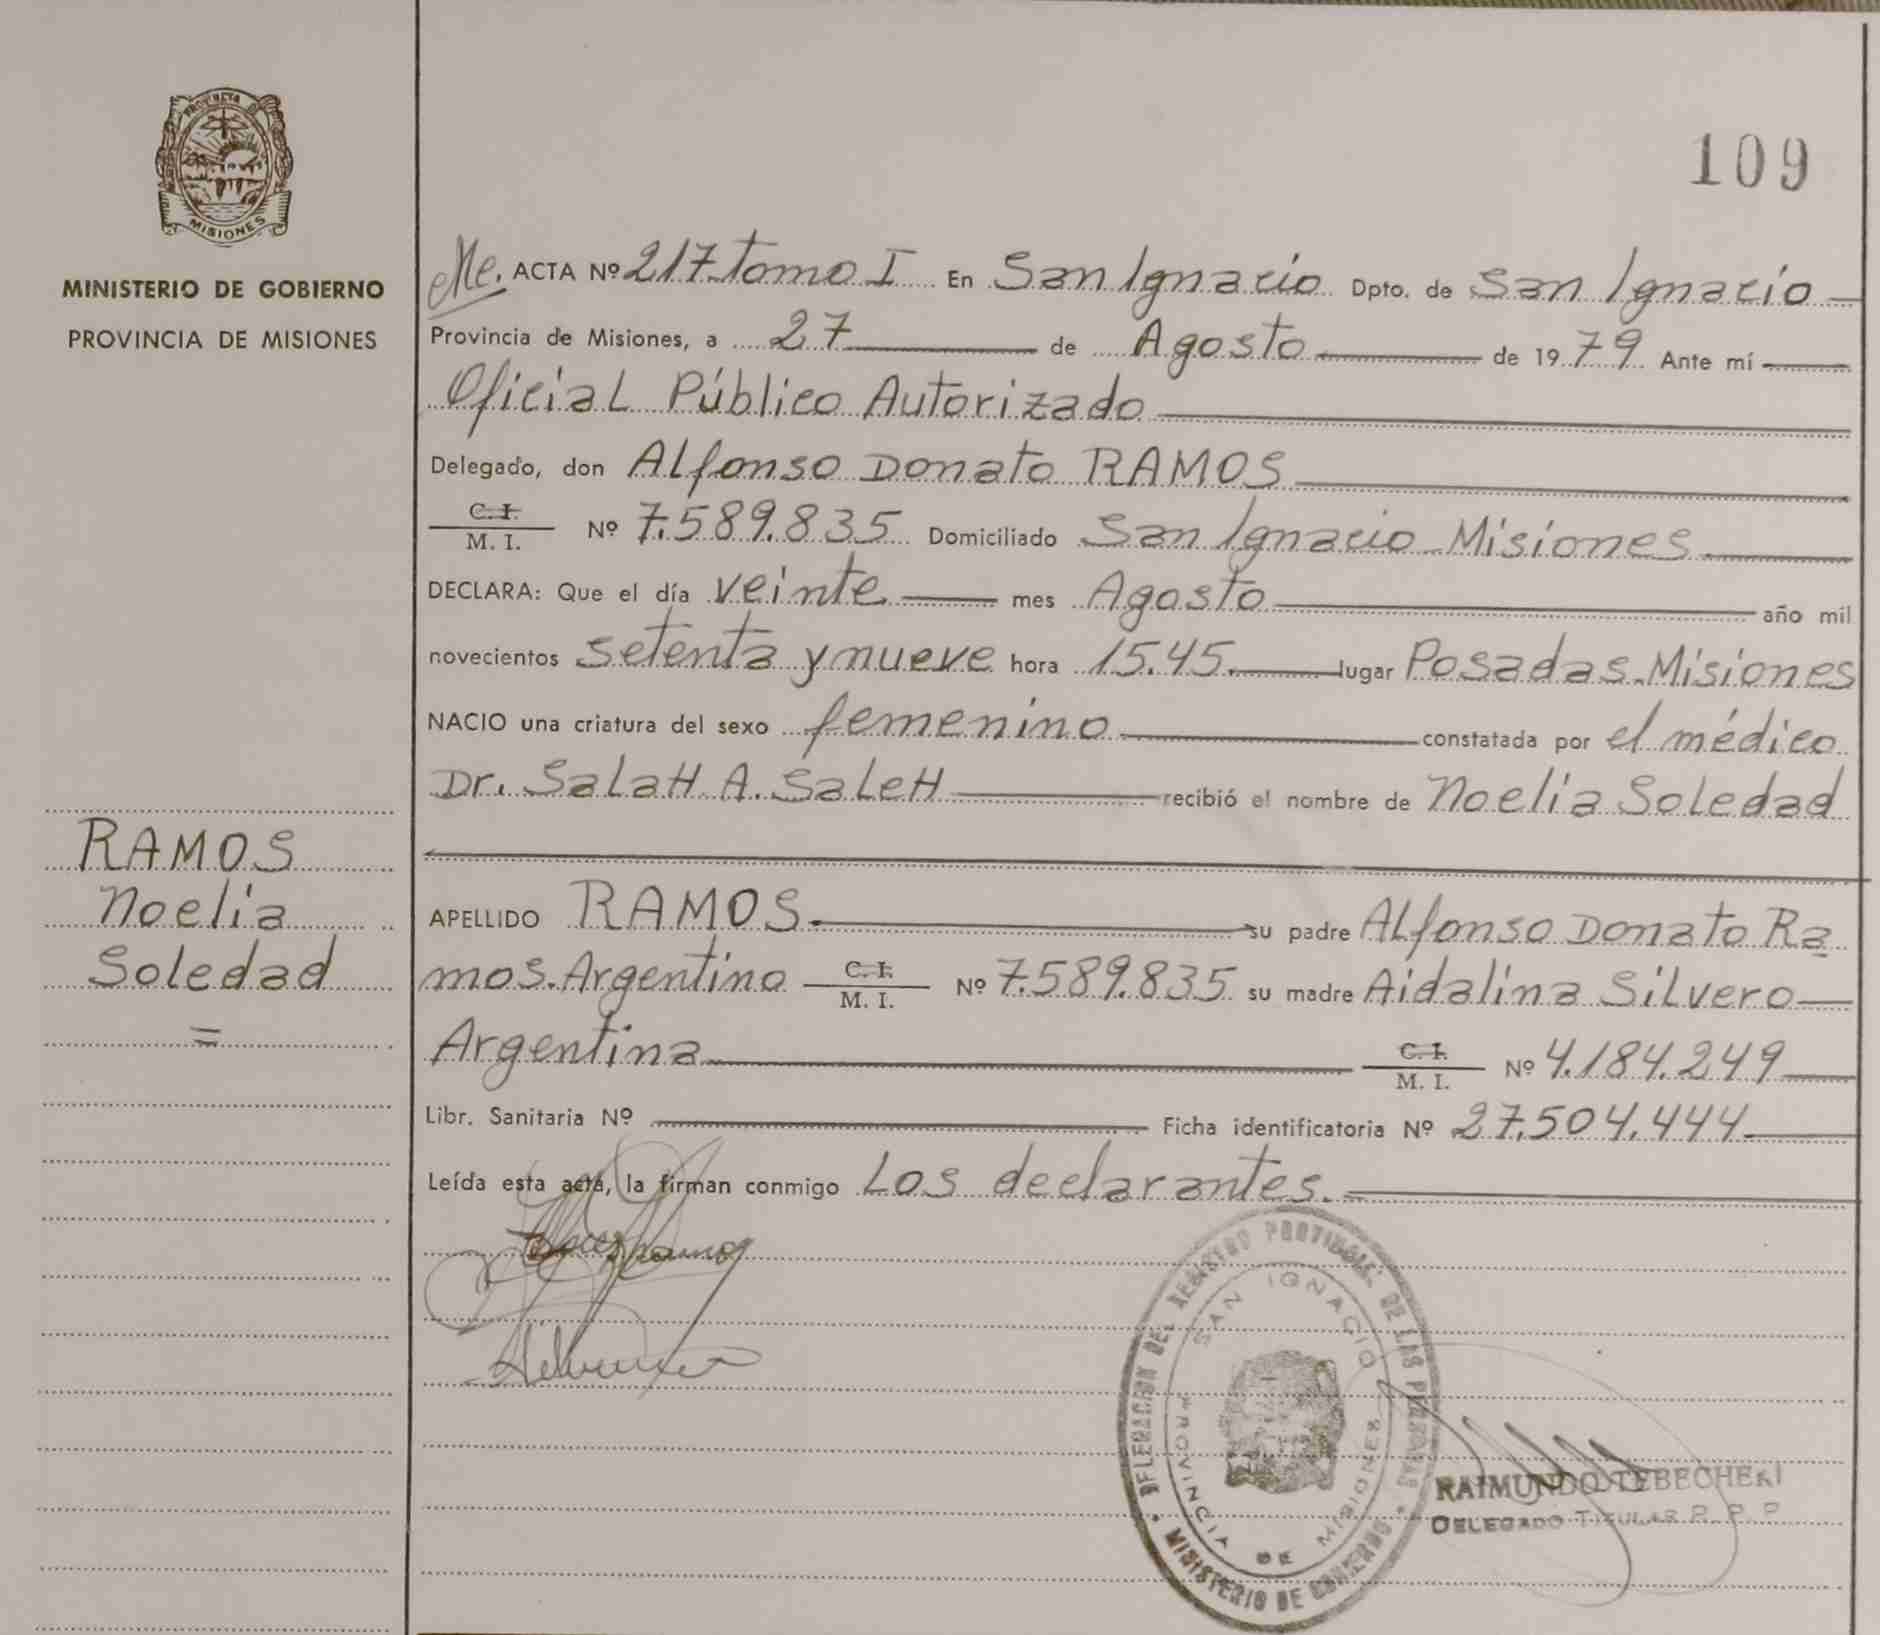 PROVINCIA DE
MISIONES
MINISTERIO DE GOBIERNO
PROVINCIA DE MISIONES
RAMOS
Noelia
Soledad
=
109
Me. ACTA Nº 217 Tomo I En San Ignacio Dpto. de San Ignacio
Provincia de Misiones, a 27 de Agosto de 1979 Ante mí
Oficial Público Autorizado
Delegado, don Alfonso Donato RAMOS
C. I. / M. I. Nº 7.589.835 Domiciliado San Ignacio Misiones
DECLARA: Que el día veinte mes Agosto año mil
novecientos setenta y nueve hora 15.45. lugar Posadas. Misiones
NACIO una criatura del sexo femenino constatada por el médico
Dr. SalaH A. SaleH recibió el nombre de Noelia Soledad
APELLIDO RAMOS. su padre Alfonso Donato Ra
mos. Argentino C. I. / M. I. Nº 7.589.835 su madre Aidalina Silvero
Argentina C. I. / M. I. Nº 4.184.249
Libr. Sanitaria Nº Ficha identificatoria Nº 27.504.444
Leída esta acta, la firman conmigo Los declarantes.
DELEGACION DEL REGISTRO PROVINCIAL DE LAS PERSONAS
MINISTERIO DE GOBIERNO
SAN IGNACIO
PROVINCIA DE MISIONES
RAIMUNDO TEBECHERI
DELEGADO TITULAR R. P. P.